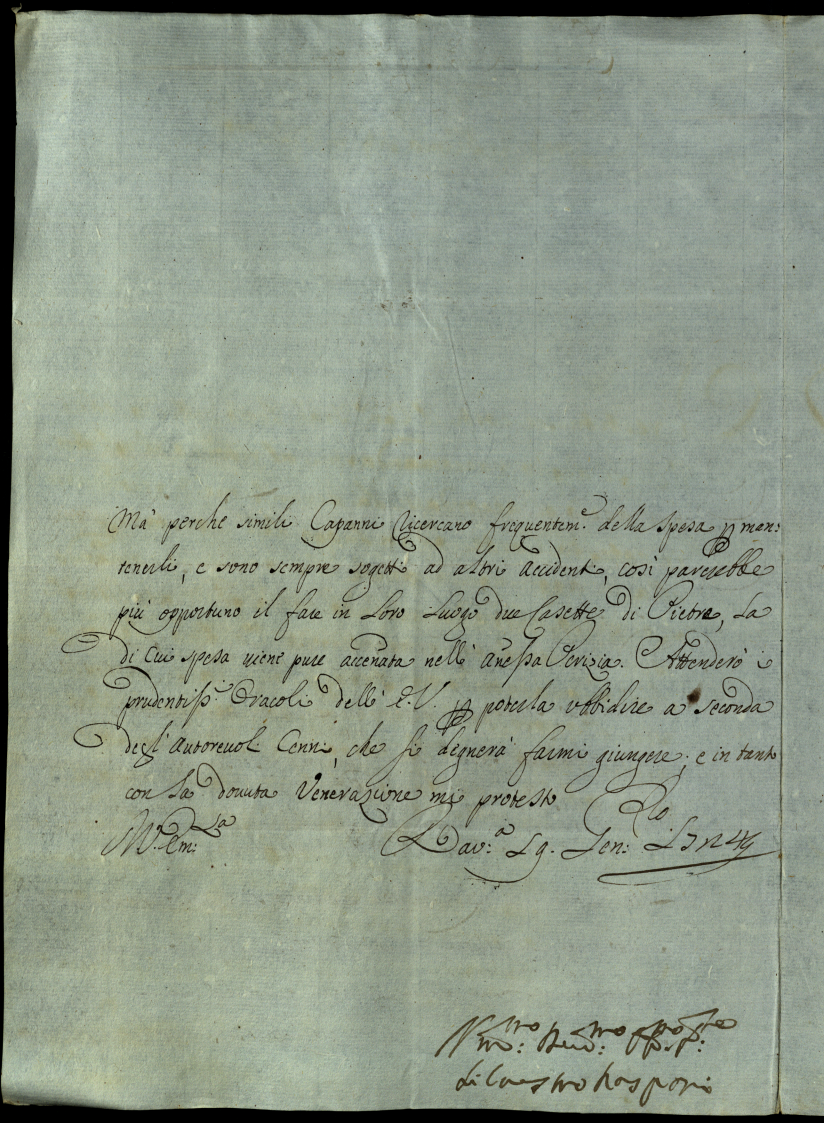 Mà perche simili Capanni ricercano frequentem.e della spesa p man:
tenerli, e sono sempre sogetti ad altri accidenti, così parerebbe
più opportuno il fare in loro Luogo due Casette di Pietra, La
di cui spesa viene pure accenata nell' anessa Perizia. Attenderò i
prudentiss.i Oracoli dell' E.V. p poterla ubbidire a seconda
degl' autorevoli Cenni, che si degnerà farmi giungere; e in tanto
con la dovuta Venerazione mi protesto
Rav.a Lg. Gen: